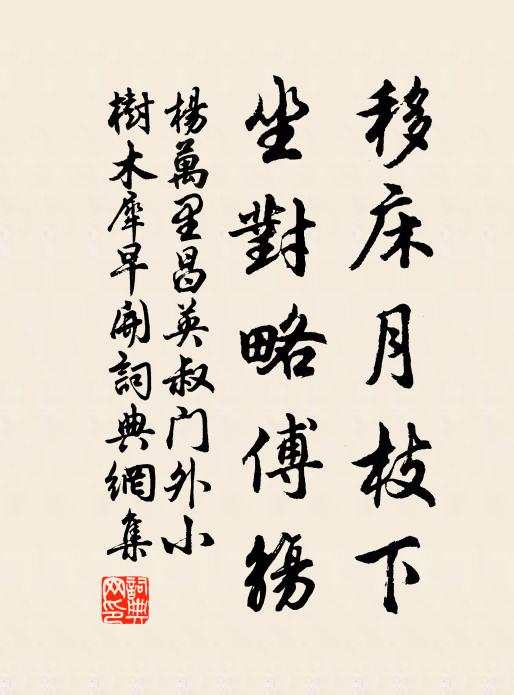 移床月枝下
坐對略傅觴
楊萬里昌英叔门外小
樹木犀早開詞典網集
詞典网印